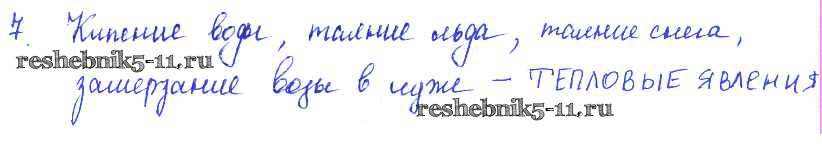 7. Кипение воды, таяние льда, таяние снега,
reshebnik5-11.ru
замерзание воды в луже – ТЕПЛОВЫЕ ЯВЛЕНИЯ
reshebnik5-11.ru